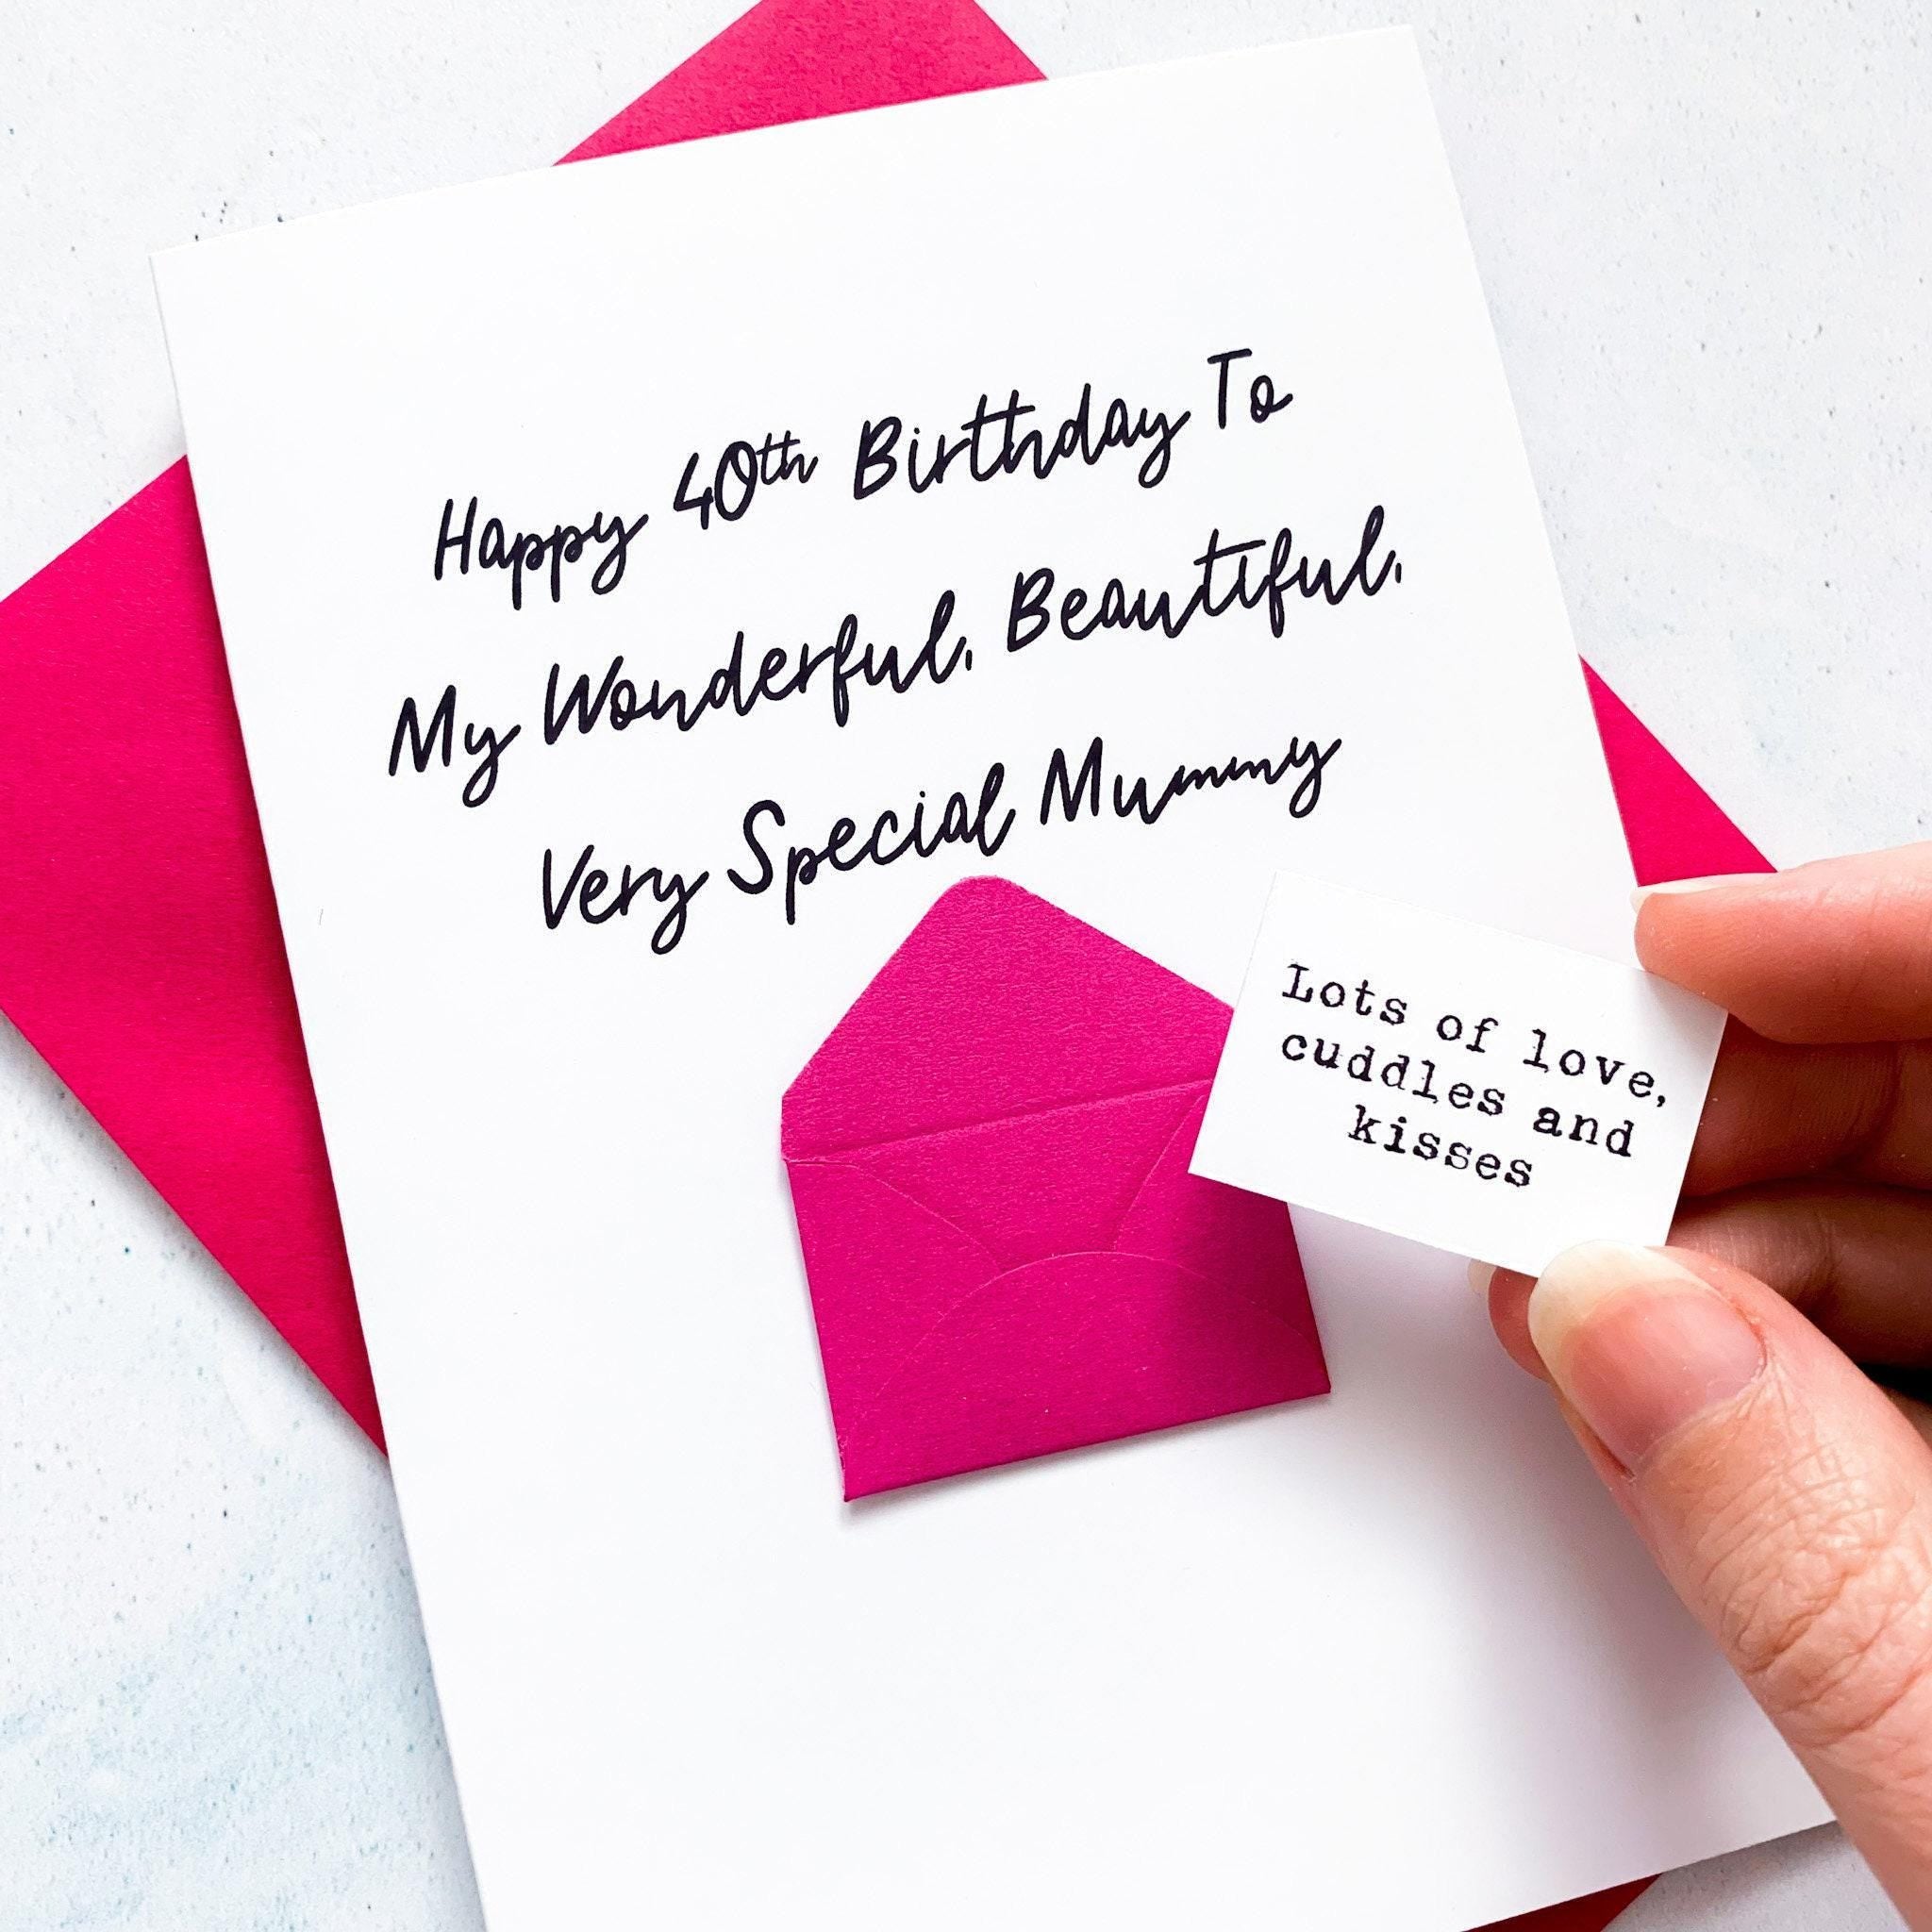 Happy 40th Birthday To
My Wonderful, Beautiful,
Very Special Mummy
Lots of love,
cuddles and
kisses